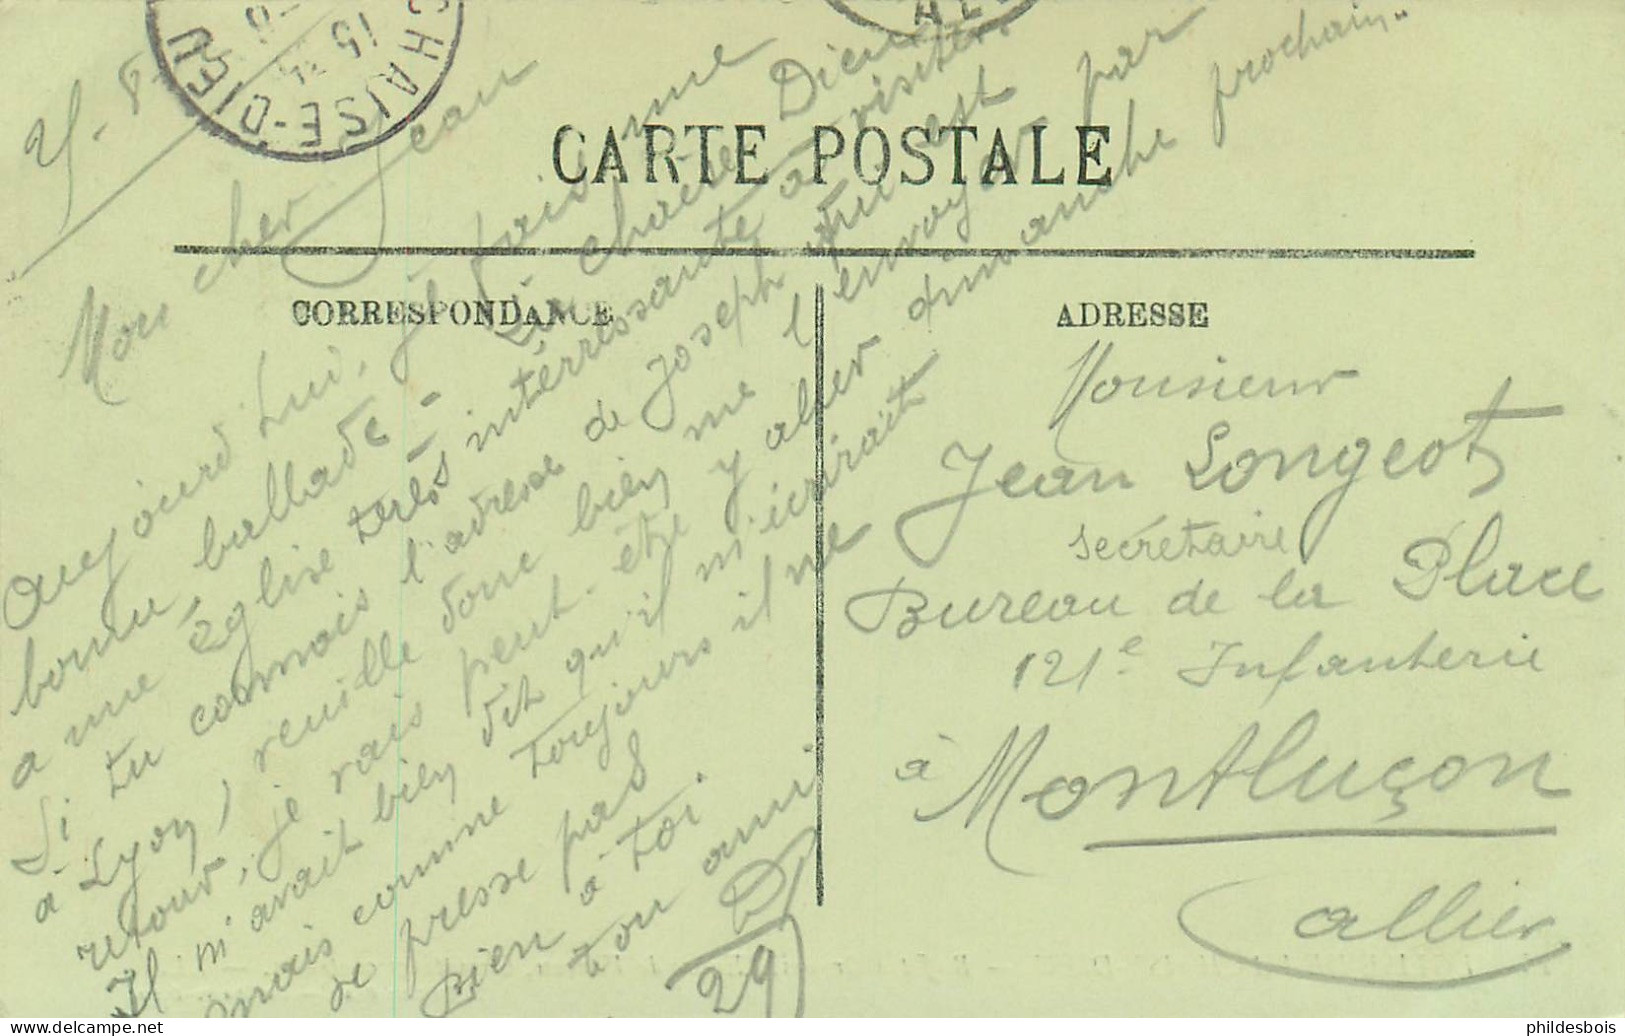 CHAISE-DIEU
15
CARTE POSTALE
CORRESPONDANCE
Mon cher Jean
Aujourd hui, je fais une
bonne ballade - La Chaise Dieu
a une église très intérressante a visiter.
Si tu connais l'adresse de Joseph qui est
à Lyon, veuille donc bien me l'envoyer par
retour, je vais peut-être y aller dimanche prochain..
Il m'avait bien dit qu'il m'écrirait
mais comme toujours il ne
se presse pas
Bien à toi.
ton ami
29
ADRESSE
Monsieur
Jean Longeot
Secrétaire
Bureau de la Place
121e Infanterie
à Montluçon
Allier
philde​sbois